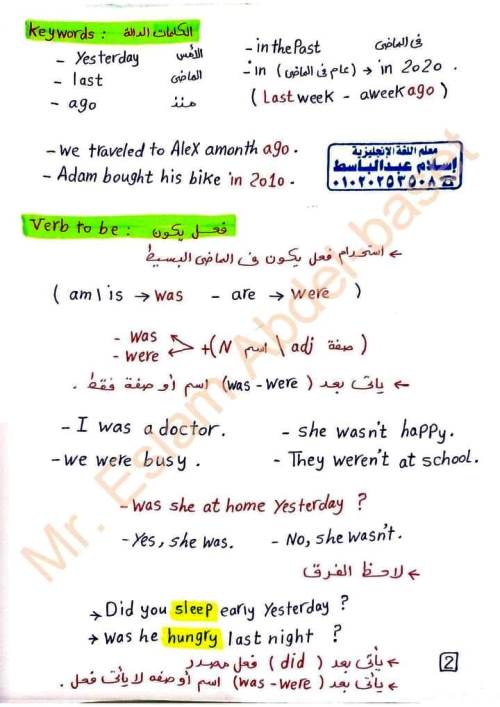 Keywords : الكلمات الدالة
- Yesterday الأمس
- last الماضى
- ago منذ
- in the Past فى الماضى
- in (عام فى الماضى) → in 2020 .
( Last week - a week ago )
- we traveled to Alex a month ago .
- Adam bought his bike in 2010 .
معلم اللغة الإنجليزية
إسلام عبدالباسط
٠١٠٢٠٢٥٢٥٠٨ ☎
Verb to be : فعل يكون
← استخدام فعل يكون فى الماضى البسيط
( am \ is → was - are → were )
- was
- were
+ ( N اسم \ adj صفة )
← يأتى بعد ( was - were ) اسم أو صفة فقط .
- I was a doctor. - she wasn't happy.
- we were busy . - They weren't at school.
- was she at home Yesterday ?
- Yes, she was. - No, she wasn't.
← لاحظ الفرق
→ Did you sleep early Yesterday ?
→ was he hungry last night ?
← يأتى بعد ( did ) فعل مصدر
← يأتى بعد ( was - were ) اسم أو صفه لا يأتى فعل .
2
Mr. Eslam Abdel baset